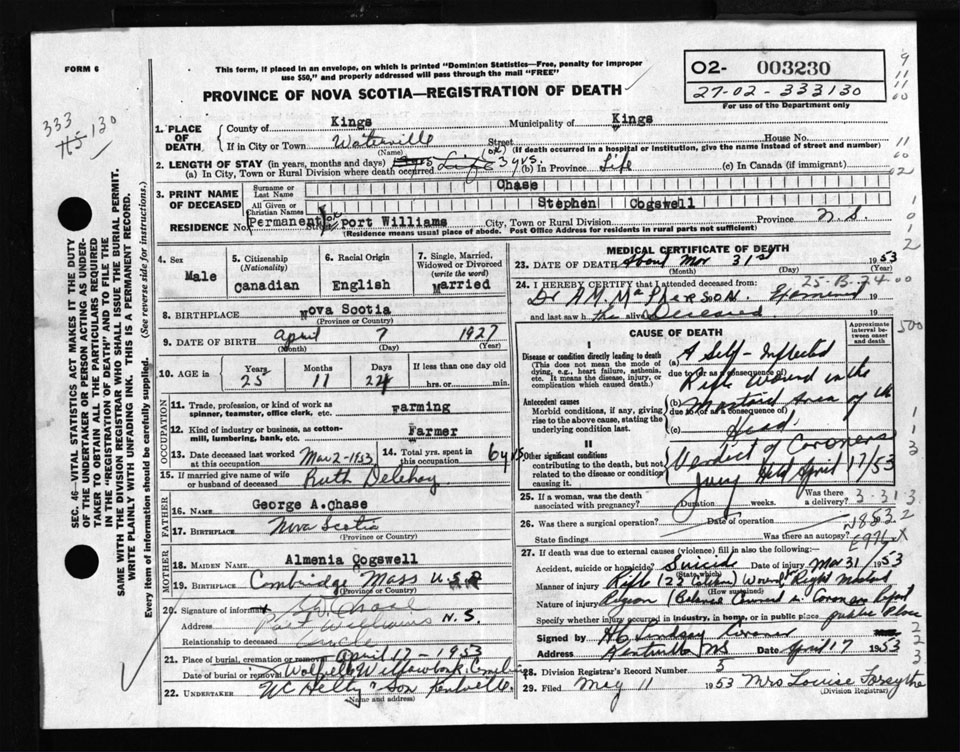 FORM 6
This form, if placed in an envelope, on which is printed "Dominion Statistics—Free, penalty for improper
use $50," and properly addressed will pass through the mail "FREE"
PROVINCE OF NOVA SCOTIA—REGISTRATION OF DEATH
02- 003230
27-02-333130
For use of the Department only
333 130
1. PLACE OF DEATH
County of Kings Municipality of Kings
If in City or Town Waterville Street House No.
(Name) (If death occurred in a hospital or institution, give the name instead of street and number)
2. LENGTH OF STAY (in years, months and days)
(a) In City, Town or Rural Division where death occurred 3 yrs. (b) In Province Life (c) In Canada (if immigrant)
3. PRINT NAME OF DECEASED
Surname or Last Name Chase
All Given or Christian Names Stephen Cogswell
RESIDENCE No. Permanent Port Williams City, Town or Rural Division Province N.S.
(Residence means usual place of abode. Post Office Address for residents in rural parts not sufficient)
4. Sex Male
5. Citizenship (Nationality) Canadian
6. Racial Origin English
7. Single, Married, Widowed or Divorced (write the word) Married
8. BIRTHPLACE Nova Scotia
(Province or Country)
9. DATE OF BIRTH April 7 1927
(Month) (Day) (Year)
10. AGE in Years 25 Months 11 Days 24 If less than one day old hrs. or min.
OCCUPATION
11. Trade, profession, or kind of work as spinner, teamster, office clerk, etc. Farming
12. Kind of industry or business, as cotton-mill, lumbering, bank, etc. Farmer
13. Date deceased last worked at this occupation Mar 2-1953
14. Total yrs. spent in this occupation 6 yrs
15. If married give name of wife or husband of deceased Ruth
FATHER
16. NAME George A. Chase
17. BIRTHPLACE Nova Scotia
(Province or Country)
MOTHER
18. MAIDEN NAME Almenia Cogswell
19. BIRTHPLACE Cambridge Mass U.S.A
(Province or Country)
20. Signature of informant Chase
Address Port Williams N.S.
Relationship to deceased Uncle
21. Place of burial, cremation or removal April 17-1953
Date of burial or removal Wolfville Willowbank
22. UNDERTAKER Son Kentville.
(Name and address)
SEC. 46—VITAL STATISTICS ACT MAKES IT THE DUTY
OF THE UNDERTAKER OR PERSON ACTING AS UNDER-
TAKER TO OBTAIN ALL THE PARTICULARS REQUIRED
IN THE "REGISTRATION OF DEATH" AND TO FILE THE
SAME WITH THE DIVISION REGISTRAR WHO SHALL ISSUE THE BURIAL PERMIT.
WRITE PLAINLY WITH UNFADING INK. THIS IS A PERMANENT RECORD.
Every item of information should be carefully supplied. (See reverse side for instructions.)
MEDICAL CERTIFICATE OF DEATH
23. DATE OF DEATH About Mar 31st 1953
(Month) (Day) (Year)
25-B-24
24. I HEREBY CERTIFY that I attended deceased from:
Dr A.M. MacPherson Examined 19
and last saw h the alive Deceased. 19
CAUSE OF DEATH
Approximate interval between onset and death
I
Disease or condition directly leading to death
(This does not mean the mode of dying, e.g., heart failure, asthenia, etc. It means the disease, injury, or complication which caused death.)
(a) A Self-Inflicted
due to (or as a consequence of) Rifle Wound in the
Antecedent causes
Morbid conditions, if any, giving rise to the above cause, stating the underlying condition last.
(b) Mastoid Area of the
due to (or as a consequence of)
(c) Head
II
Other significant conditions
contributing to the death, but not related to the disease or condition causing it.
Verdict of Coroners
Jury Held April 17/53
25. If a woman, was the death associated with pregnancy? Duration weeks. Was there a delivery?
3-313
26. Was there a surgical operation? Date of operation
State findings Was there an autopsy?
N853.2
27. If death was due to external causes (violence) fill in also the following:—
Accident, suicide or homicide? Suicide Date of injury Mar 31 1953
(State which)
Manner of injury Rifle (22 Calibre) Wound Right Mastoid
(How sustained)
Nature of injury Region (Balance Covered in Coroners Report
Specify whether injury occurred in industry, in home, or in public place public place
Signed by Lindsay Coroner
Address Kentville NS Date April 17 1953
28. Division Registrar's Record Number 5
29. Filed May 11 1953 Mrs Louise Forsythe
(Division Registrar)